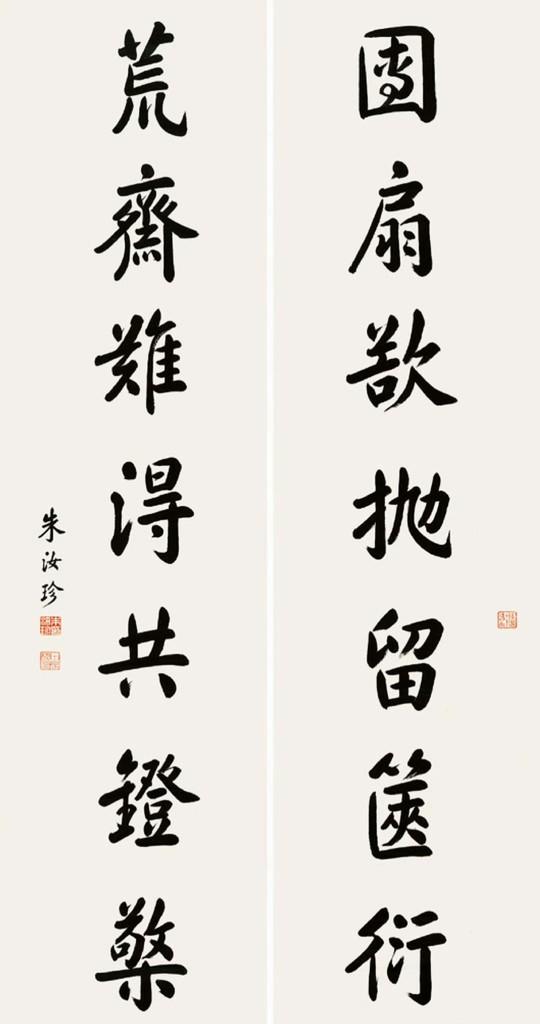 團扇欲抛留篋衍
荒齋難得共鐙檠
朱汝珍